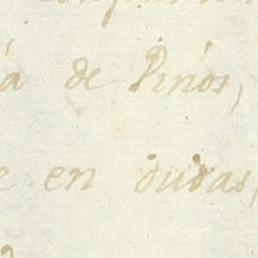 a de Pinós,
e en duras,